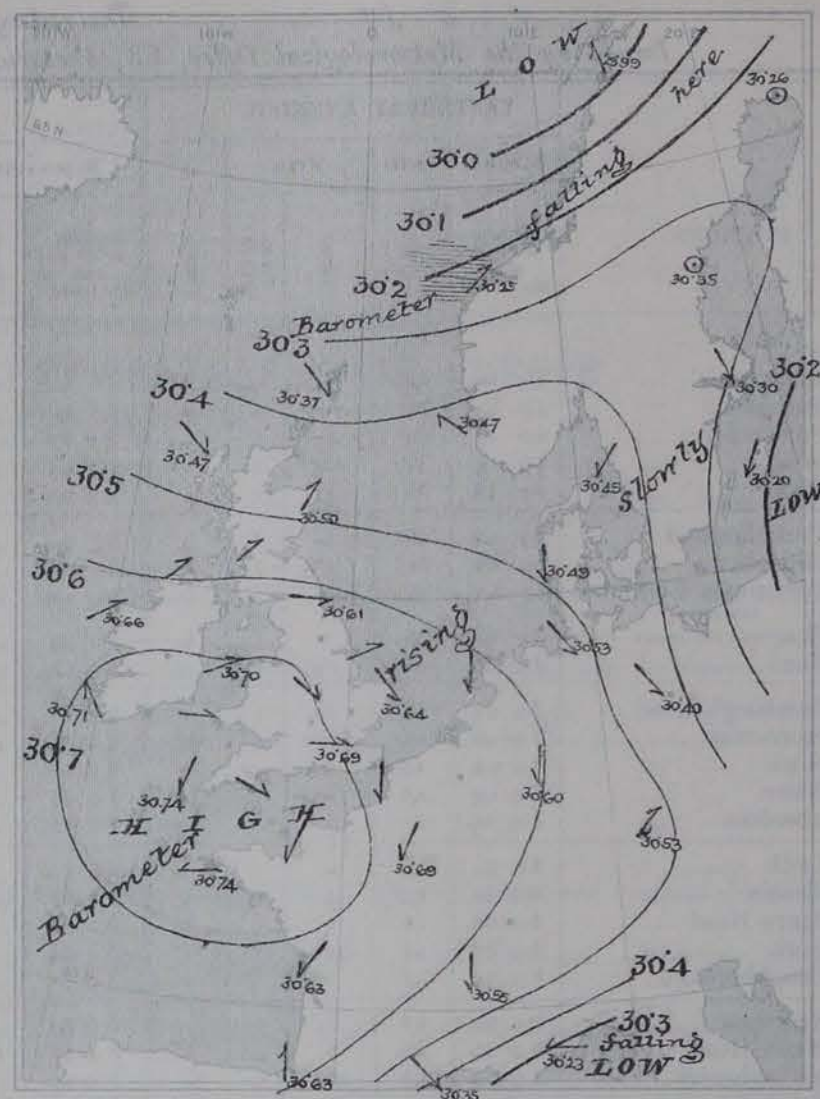 10/W
0
10/E
20/E
65N
LOW
29.99
here
30.26
30.0
30.1
falling
30.2
30.25
30.35
Barometer
30.3
30.37
30.4
30.47
30.47
30.30
30.2
30.45
Slowly
30.20
LOW
30.5
30.50
30.49
30.6
30.66
30.61
rising
30.53
30.70
30.71
30.64
30.40
30.7
30.69
30.74
30.60
HIGH
30.53
Barometer
30.74
30.69
30.63
30.55
30.4
30.3
falling
30.23
LOW
30.63
30.35